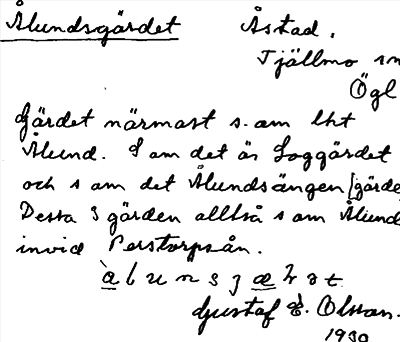 Ålundsgärdet Åstad.
Tjällmo sn
Ögl
Gärdet närmast s. om lht
Ålund. S om det är Loggärdet
och s om det Ålundsängen (gärde
Dessa 3 gärden alltså s om Ålund
invid Perstorpsån.
Gustaf E. Olsson.
1930